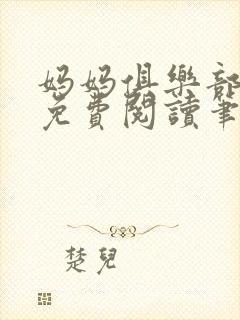 妈妈俱樂部
免費閱讀筆
楚兒